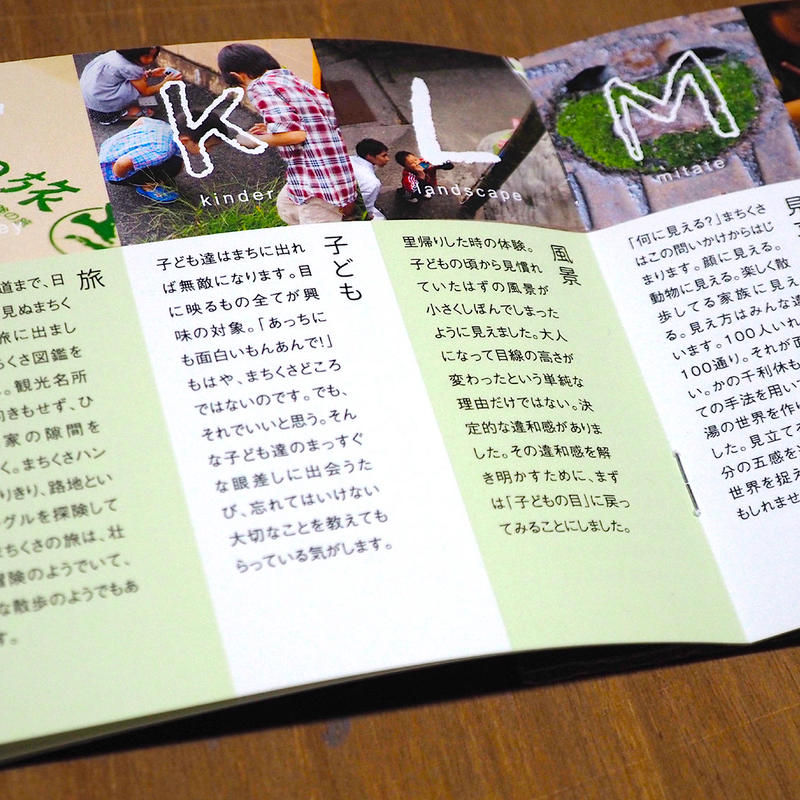 の旅
ey
旅
道まで、日
見ぬまちく
旅に出まし
ちくさ図鑑を
。観光名所
向きもせず、ひ
家の隙間を
く。まちくさハン
りきり、路地とい
ングルを探険して
まちくさの旅は、壮
冒険のようでいて、
な散歩のようでもあ
す。
K
kinder
子ども
子ども達はまちに出れ
ば無敵になります。目
に映るもの全てが興
味の対象。「あっちに
も面白いもんあんで!」
もはや、まちくさどころ
ではないのです。でも、
それでいいと思う。そん
な子ども達のまっすぐ
な眼差しに出会うた
び、忘れてはいけない
大切なことを教えても
らっている気がします。
L
landscape
風景
里帰りした時の体験。
子どもの頃から見慣れ
ていたはずの風景が
小さくしぼんでしまった
ように見えました。大人
になって目線の高さが
変わったという単純な
理由だけではない。決
定的な違和感がありま
した。その違和感を解
き明かすために、まず
は「子どもの目」に戻っ
てみることにしました。
M
mitate
見
「何に見える?」まちくさ
はこの問いかけからはじ
まります。顔に見える。
動物に見える。楽しく散
歩してる家族に見え
る。見え方はみんな違
います。100人いれ
100通り。それが面
い。かの千利休も
ての手法を用い
湯の世界を作り
した。見立て
分の五感を
世界を捉え
もしれませ